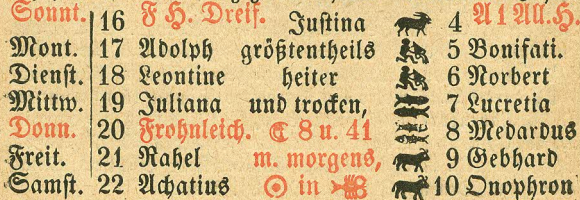 Sonnt. 16 F H. Dreif. Justina 4 A 1 All. H.
Mont. 17 Adolph größtentheils 5 Bonifati.
Dienst. 18 Leontine heiter 6 Norbert
Mittw. 19 Juliana und trocken, 7 Lucretia
Donn. 20 Frohnleich. ☾ 8 u. 41 8 Medardus
Freit. 21 Rahel m. morgens, 9 Gebhard
Samst. 22 Achatius ☉ in 10 Onophron